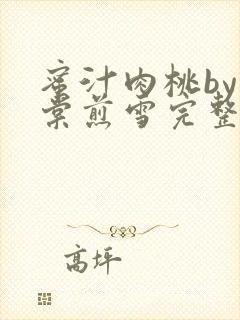 蜜汁肉桃by
棠煎雪完整
高坪